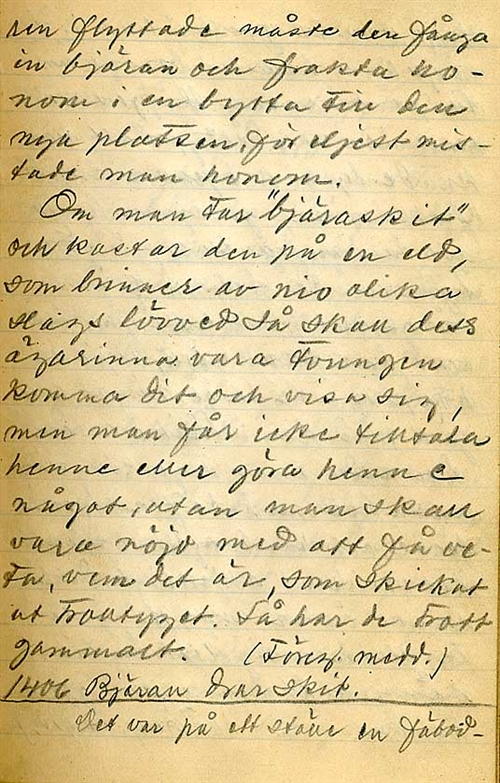 ren flyttade måste den fånga
in bjäran och frakta ho-
nom i en bytta till den
nya platsen, för eljest mis-
tade man honom.
Om man tar "bjäraskit"
och kastar den på en eld,
som brinner av nio olika
slags lövved så skall dess
ägarinna vara tvungen
komma dit och visa sig,
men man får icke tilltala
henne eller göra henne
något, utan man skall
vara nöjd med att få ve-
ta, vem det är, som skickat
ut trolltyget. Så har de trott
gammalt. (Föreg. medd.)
1406 Bjäran drar skit.
Det var på ett ställe en fäbod-